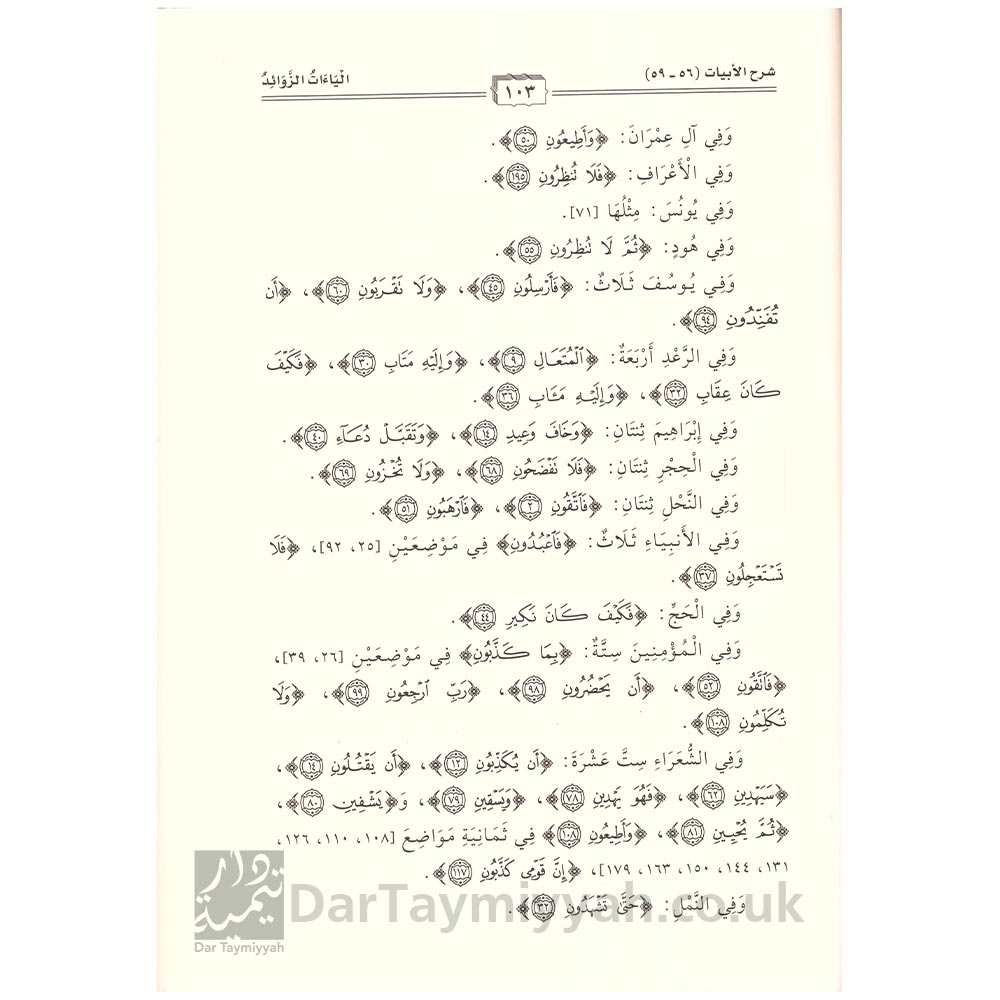 شرح الأبيات (٥٦ - ٥٩)
١٠٣
الْيَاءَاتُ الزَّوَائِدُ
وَفِي آلِ عِمْرَانَ: ﴿وَأَطِيعُونِ ۝٥٠﴾.
وَفِي الْأَعْرَافِ: ﴿فَلَا تُنظِرُونِ ۝١٩٥﴾.
وَفِي يُونُسَ: مِثْلُهَا [٧١].
وَفِي هُودٍ: ﴿ثُمَّ لَا تُنظِرُونِ ۝٥٥﴾.
وَفِي يُوسُفَ ثَلَاثٌ: ﴿فَأَرْسِلُونِ ۝٤٥﴾، ﴿وَلَا تَقْرَبُونِ ۝٦٠﴾، ﴿أَن
تُفَنِّدُونِ ۝٩٤﴾.
وَفِي الرَّعْدِ أَرْبَعَةٌ: ﴿ٱلْمُتَعَالِ ۝٩﴾، ﴿وَإِلَيْهِ مَتَابِ ۝٣٠﴾، ﴿فَكَيْفَ
كَانَ عِقَابِ ۝٣٢﴾، ﴿وَإِلَيْهِ مَـَٔابِ ۝٣٦﴾.
وَفِي إِبْرَاهِيمَ ثِنْتَانِ: ﴿وَخَافَ وَعِيدِ ۝١٤﴾، ﴿وَتَقَبَّلْ دُعَآءِ ۝٤٠﴾.
وَفِي الْحِجْرِ ثِنْتَانِ: ﴿فَلَا تَفْضَحُونِ ۝٦٨﴾، ﴿وَلَا تُخْزُونِ ۝٦٩﴾.
وَفِي النَّحْلِ ثِنْتَانِ: ﴿فَٱتَّقُونِ ۝٢﴾، ﴿فَٱرْهَبُونِ ۝٥١﴾.
وَفِي الأَنبِيَاءِ ثَلَاثٌ: ﴿فَٱعْبُدُونِ﴾ فِي مَوْضِعَيْنِ [٢٥، ٩٢]، ﴿فَلَا
تَسْتَعْجِلُونِ ۝٣٧﴾.
وَفِي الْحَجِّ: ﴿فَكَيْفَ كَانَ نَكِيرِ ۝٤٤﴾.
وَفِي الْمُؤْمِنِينَ سِتَّةٌ: ﴿بِمَا كَذَّبُونِ﴾ فِي مَوْضِعَيْنِ [٢٦، ٣٩]،
﴿فَٱتَّقُونِ ۝٥٢﴾، ﴿أَن يَحْضُرُونِ ۝٩٨﴾، ﴿رَبِّ ٱرْجِعُونِ ۝٩٩﴾، ﴿وَلَا
تُكَلِّمُونِ ۝١٠٨﴾.
وَفِي الشُّعَرَاءِ سِتَّ عَشْرَةَ: ﴿أَن يُكَذِّبُونِ ۝١٢﴾، ﴿أَن يَقْتُلُونِ ۝١٤﴾،
﴿سَيَهْدِينِ ۝٦٢﴾، ﴿فَهُوَ يَهْدِينِ ۝٧٨﴾، ﴿وَيَسْقِينِ ۝٧٩﴾، وَ﴿يَشْفِينِ ۝٨٠﴾،
﴿ثُمَّ يُحْيِينِ ۝٨١﴾، ﴿وَأَطِيعُونِ ۝١٠٨﴾ فِي ثَمَانِيَةِ مَوَاضِعَ [١٠٨، ١١٠، ١٢٦،
١٣١، ١٤٤، ١٥٠، ١٦٣، ١٧٩]، ﴿إِنَّ قَوْمِى كَذَّبُونِ ۝١١٧﴾.
وَفِي النَّمْلِ: ﴿حَتَّىٰ تَشْهَدُونِ ۝٣٢﴾.
دار تيمية
Dar Taymiyyah
DarTaymiyyah.co.uk